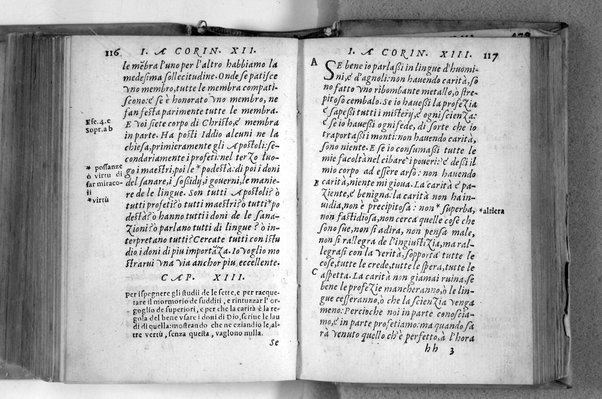 116 I. A CORIN. XII.
le mẽbra l'uno per l'altro habbiamo la
medesima sollecitudine. Onde se patisce
vno membro, tutte le membra compati-
scono: e se è honorato vno membro, ne
fan festa parimente tutte le membra.
Efe. 4. e
Sopr. a b
E voi sete corpo di Christo, e membra
in parte. Ha posti Iddio alcuni ne la
chiesa, primieramente gli Apostoli: se-
condariamente i profeti: nel terzo luo-
* possanze
ò virtu di
far miraco-
li
*virtù
go i maestri, poi le * podestà: di poi i doni
del sanare, i sossidij, i gouerni, le manie-
re de le lingue. Son tutti Apostoli? ò
tutti profeti? ò tutti maestri? ò tutti *po
destà? ò hanno tutti i doni de le sana-
zioni? ò parlano tutti di lingue? ò in-
terpretano tutti? Cercate tutti con istu
dio i doni di piu importãza. Io voglio mo
strarui vna via anchor piu eccellente.
CAP. XIII.
Per ispegnere gli studii de le sette, e per racque-
tare il mormorio de sudditi, e rintuzzar l'or-
goglio de superiori, e per che la carità è la re-
gola del bene vsare i doni di Dio, scriue le lau
di di quella: mostrando che ne eziandio le, al-
tre vertù, senza questa, vaglono nulla.
Se
I. A CORIN. XIII. 117
A
SE bene io parlassi in lingue d'huomi-
ni, e d'agnoli: non hauendo carità, so
no fatto vno ribombante metallo, ò stre-
pitoso cembalo. Se io hauessi la profezia
e sapessi tutti i misterij, e ogni scienza:
e se io hauessi ogni fede, di sorte che io
traportassi i monti: non hauendo carità,
sono niente. E se io consumassi tutte le
mie facoltà nel cibare i poueri: e dessi il
mio corpo ad essere arso: non hauendo
B
carità, niente mi gioua. La carità è pa-
ziente, è benigna: la carità non ha in-
uidia, non è precipitosa: non * superba,
*altiera
non fastidiosa, non cerca quelle cose che
sono sue, non si adira, non pensa male,
non si rallegra de l'ingiustizia, ma ral-
legrasi con la verità, sopporta tutte le
cose, tutte le crede, tutte le spera, tutte le
C
aspetta. La carità non giamai ruina, se
bene le profezie mancheranno, ò le lin-
gue cesseranno, ò che la scienzia venga
meno: Percioche noi in parte conoscia-
mo, e in parte profetiamo: ma quando sa
rà venuto quello ch'è perfetto, à l'hora
hh 3